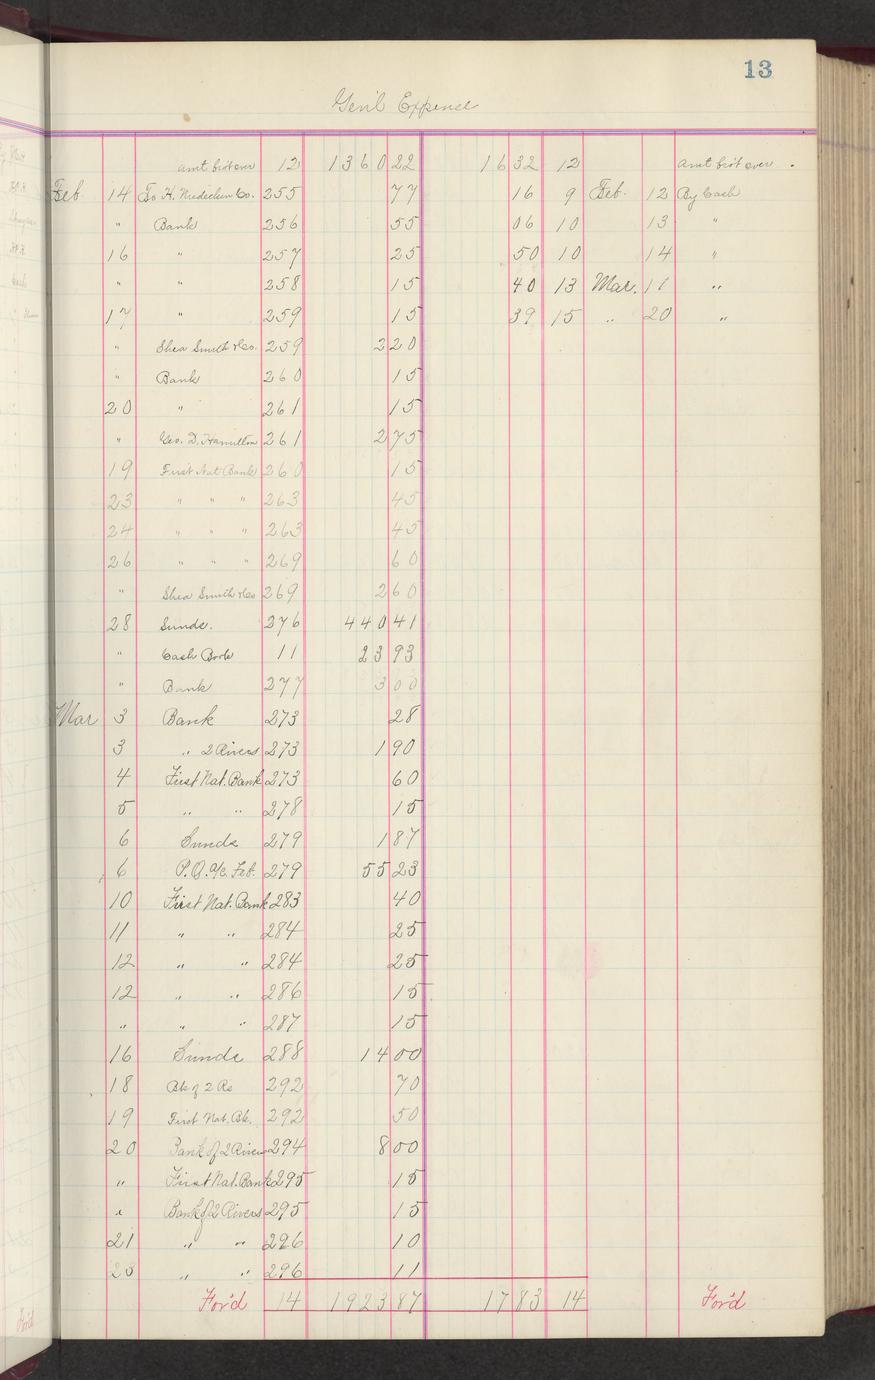 13
Gen'l Expense
amt bro't over 12 1360 22 16 32 12 amt bro't over
Feb 14 To H. Niedecken Co. 255 77 16 9 Feb. 12 By Cash
" Bank 256 55 06 10 13 "
16 " 257 25 50 10 14 "
" " 258 15 40 13 Mar. 11 "
17 " 259 15 39 15 " 20 "
" Shea Smith & Co. 259 2 20
" Bank 260 15
20 " 261 15
" Geo. D. Hamilton 261 2 75
19 First Nat Bank 260 15
23 " " " 263 45
24 " " " 263 45
26 " " " 269 60
" Shea Smith & Co 269 2 60
28 Sunds. 276 440 41
" Cash Book 11 23 93
" Bank 277 3 00
Mar 3 Bank 273 28
3 " 2 Rivers 273 1 90
4 First Nat. Bank 273 60
5 " " 278 15
6 Sunds 279 1 87
6 P.O. a/c. Feb. 279 55 23
10 First Nat. Bank 283 40
11 " " 284 25
12 " " 284 25
12 " " 286 15
" " " 287 15
16 Sunds 288 14 00
18 Bk of 2 Rs 292 70
19 First Nat. Bk. 292 50
20 Bank of 2 Rivers 294 8 00
" First Nat. Bank 295 15
" Bank of 2 Rivers 295 15
21 " " 296 10
23 " " 296 11
For'd 14 1923 87 17 83 14 For'd